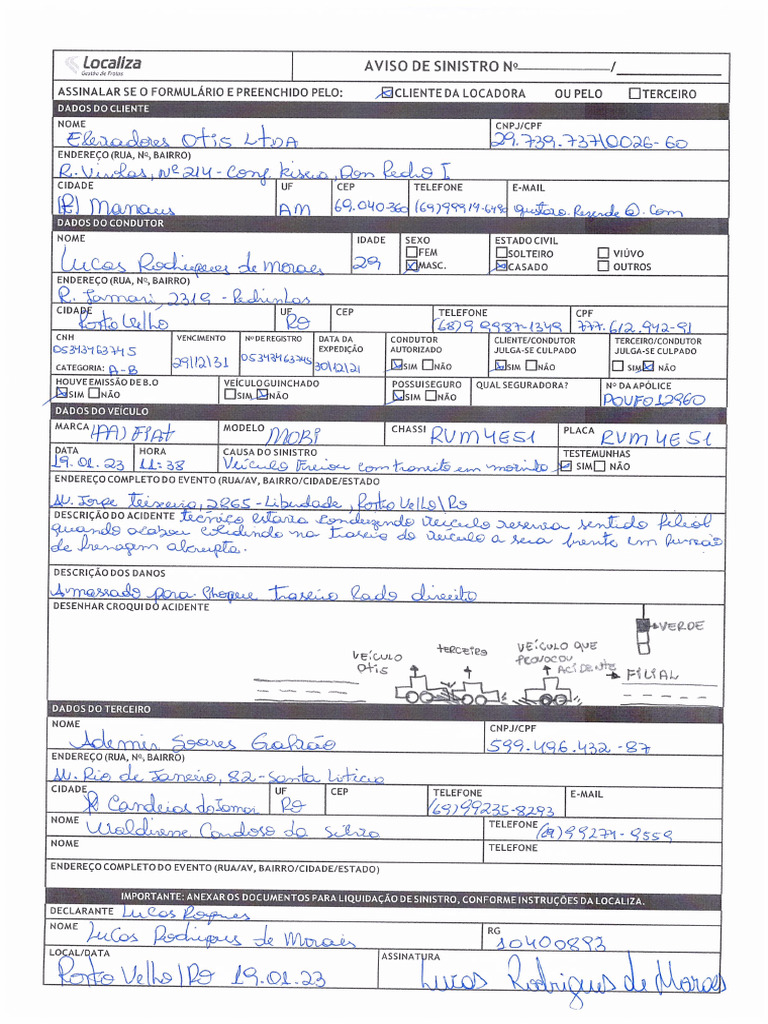 Localiza
Gestão de Frotas
AVISO DE SINISTRO Nº /
ASSINALAR SE O FORMULÁRIO E PREENCHIDO PELO: CLIENTE DA LOCADORA OU PELO TERCEIRO
DADOS DO CLIENTE
NOME CNPJ/CPF
Elevadores Otis LTDA 29.739.737/0026-60
ENDEREÇO (RUA, Nº, BAIRRO)
R. Nº 214 - Conj. Dom Pedro I
CIDADE UF CEP TELEFONE E-MAIL
Manaus AM 69.040-360
DADOS DO CONDUTOR
NOME IDADE SEXO ESTADO CIVIL
FEM SOLTEIRO VIÚVO
Lucas Rodrigues de Moraes 29 MASC. CASADO OUTROS
ENDEREÇO (RUA, Nº, BAIRRO)
R. Jamari, 2319 - Pedrinhas
CIDADE UF CEP TELEFONE CPF
Porto Velho RO (68)9 9987-1349 777.612.942-91
CNH VENCIMENTO Nº DE REGISTRO DATA DA EXPEDIÇÃO CONDUTOR AUTORIZADO CLIENTE/CONDUTOR JULGA-SE CULPADO TERCEIRO/CONDUTOR JULGA-SE CULPADO
05343463745 29/12/31 05343463745 30/12/21 SIM NÃO SIM NÃO SIM NÃO
CATEGORIA: A-B
HOUVE EMISSÃO DE B.O VEÍCULO GUINCHADO POSSUI SEGURO QUAL SEGURADORA? Nº DA APÓLICE
SIM NÃO SIM NÃO SIM NÃO POUFO12960
DADOS DO VEÍCULO
MARCA FIAT MODELO MOBI CHASSI RVM4E51 PLACA RVM4E51
DATA HORA CAUSA DO SINISTRO TESTEMUNHAS
19.01.23 11:38 Veículo Freiou com transito em SIM NÃO
ENDEREÇO COMPLETO DO EVENTO (RUA/AV, BAIRRO/CIDADE/ESTADO
Av. Jorge Teixeira, 2865 - Liberdade, Porto Velho/RO
DESCRIÇÃO DO ACIDENTE Técnico estava conduzindo veículo reserva sentido filial
quando acabou colidindo na traseira do veículo a sua frente em
de frenagem abrupta.
DESCRIÇÃO DOS DANOS
Amassado para choque traseiro lado direito
DESENHAR CROQUI DO ACIDENTE
VERDE
VEÍCULO OTIS TERCEIRO VEÍCULO QUE PROVOCOU ACIDENTE FILIAL
DADOS DO TERCEIRO
NOME CNPJ/CPF
Ademir Soares 599.496.432-87
ENDEREÇO (RUA, Nº, BAIRRO)
Av. Rio de Janeiro, 82 - Santa Liticia
CIDADE UF CEP TELEFONE E-MAIL
Candeias do Jamari RO (69)99235-8293
NOME TELEFONE
Waldirene Cardoso da (69)99274-9559
NOME TELEFONE
ENDEREÇO COMPLETO DO EVENTO (RUA/AV, BAIRRO/CIDADE/ESTADO)
IMPORTANTE: ANEXAR OS DOCUMENTOS PARA LIQUIDAÇÃO DE SINISTRO, CONFORME INSTRUÇÕES DA LOCALIZA.
DECLARANTE Lucas
NOME RG
Lucas Rodrigues de Moraes 10400893
LOCAL/DATA ASSINATURA
Porto Velho/RO 19.01.23 Lucas Rodrigues de Moraes